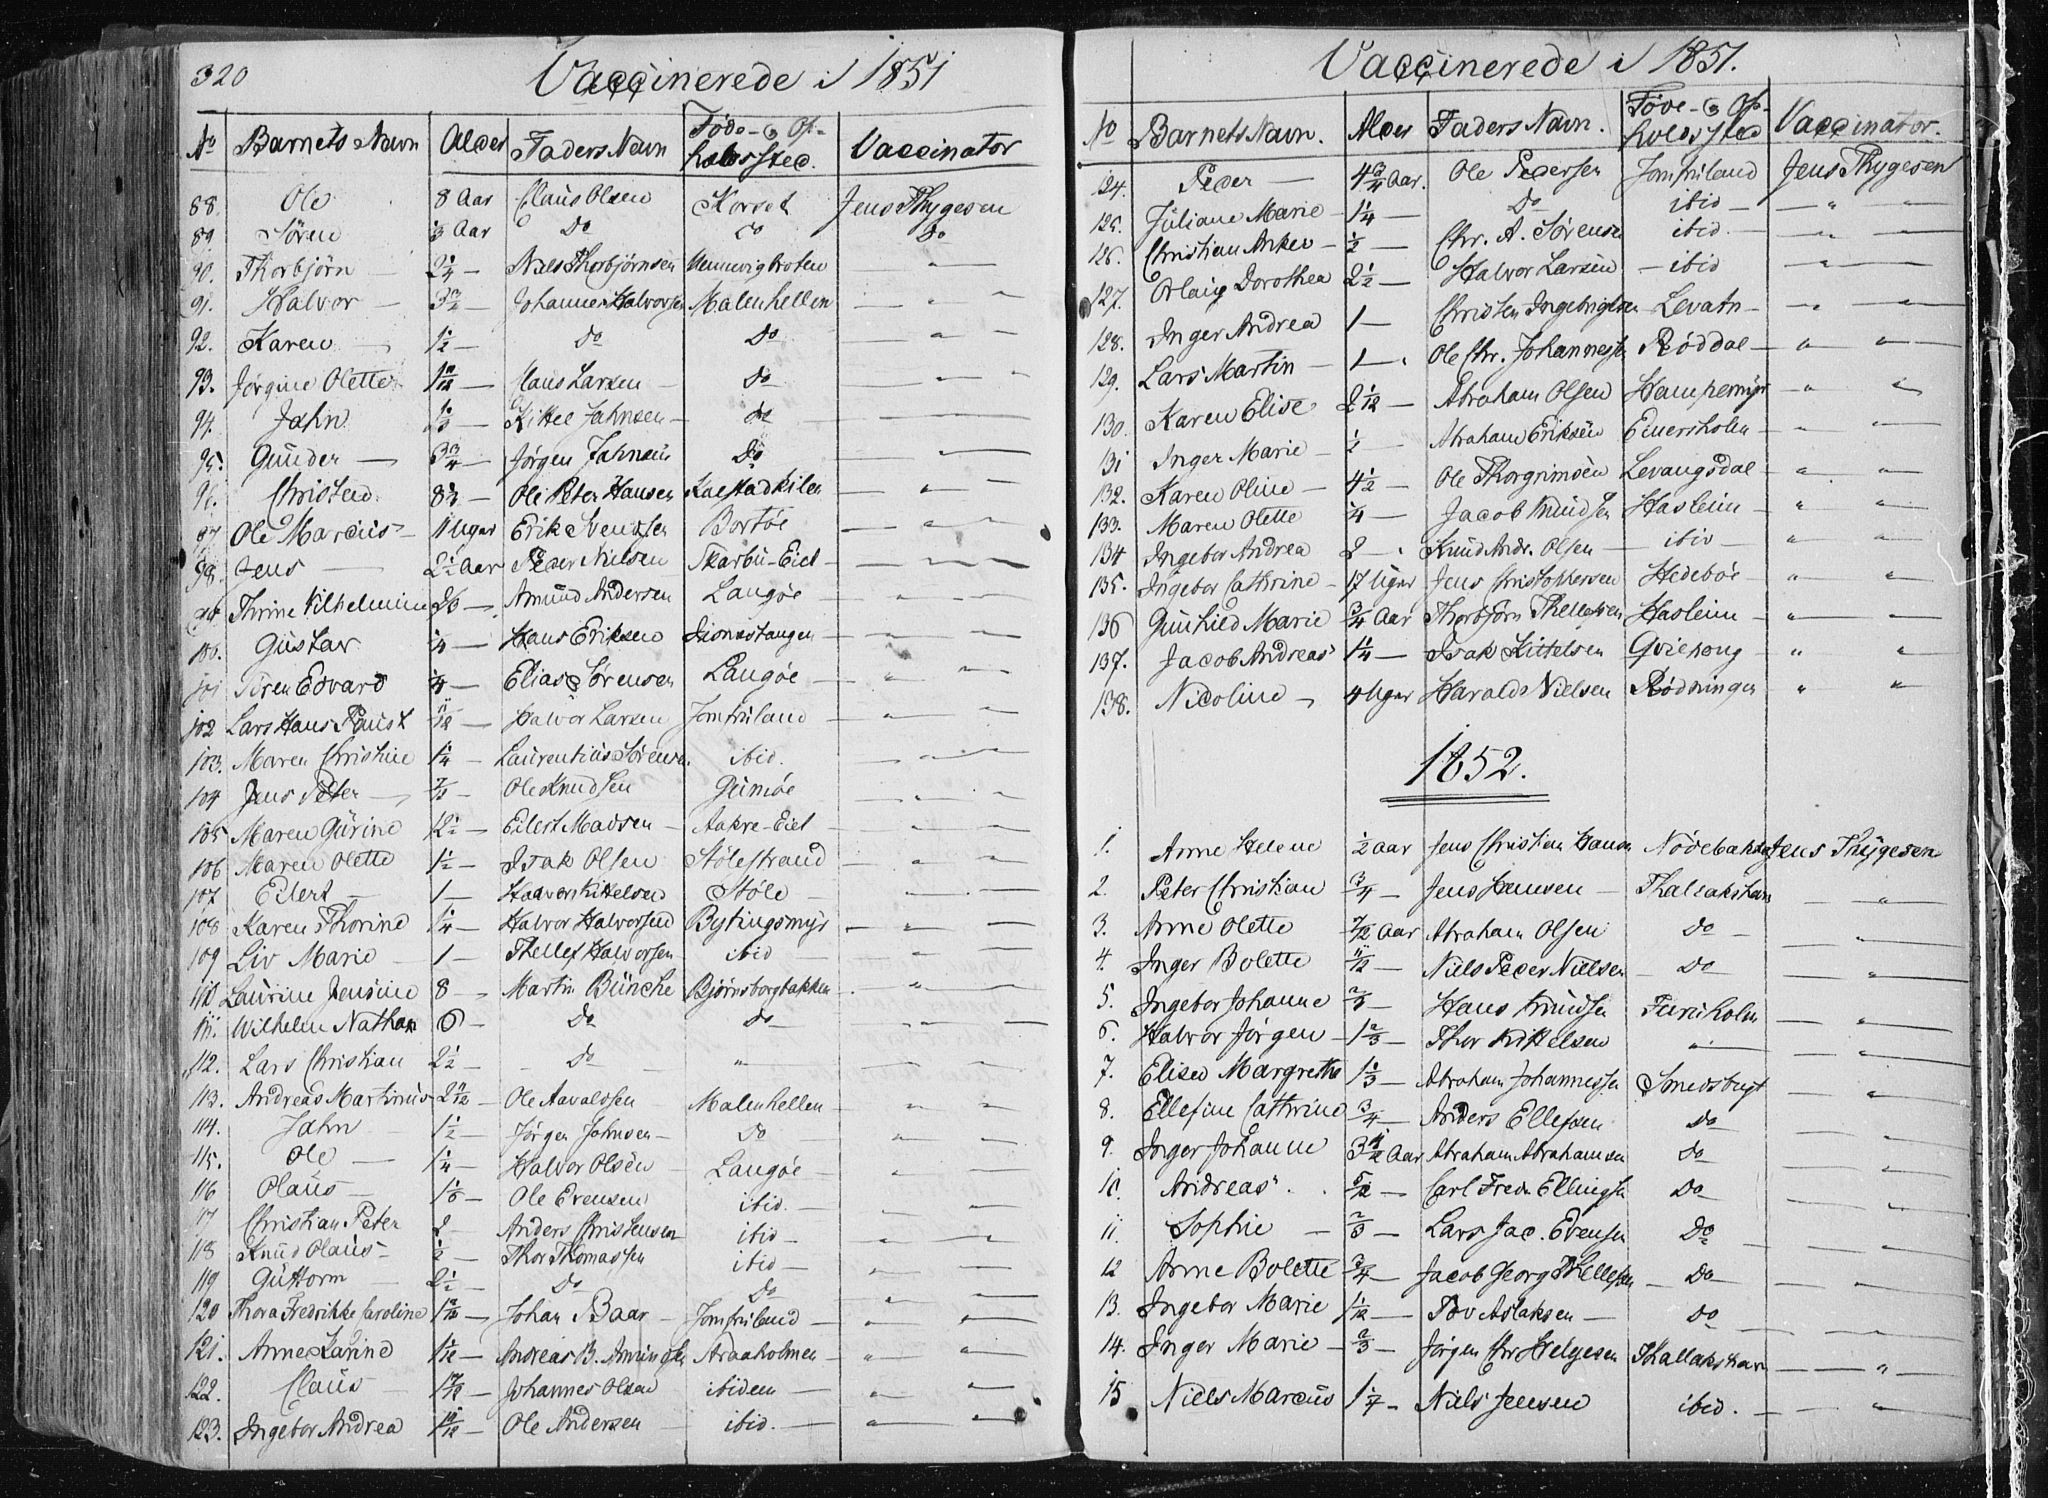 320 Vaccinerede i 1851
No Barnets Navn Alder Faders Navn Føde- og Op-holdssted. Vaccinator
88. Ole 8 Aar Claus Olsen Korset Jens Thygesen
89. Søren 3 Aar Do Do Do
90. Thorbjørn — 2 1/4 — Niels Thorbjørnsen — —
91. Halvor — 3 1/2 — Johannes Halvorsen Malenhellen — " "
92. Karen — 1/2 — Do Do — " —
93. Jørgine Olette 1 10/12 — Claus Larsen — Do — —
94. Jahn 1/3 — Kittel Jahnsen — do —
95. Gunder — 3 3/4 — Jørgen Jahnsen Do — "
96. Christen 8 1/2 — Ole Peter Hansen Kaestadkilen — " —
97 Ole Marcus — 11 Uger Erik Svendsen Bortøe — " —
98. Jens — 2 1/2 Aar Peder Nielsen Skarbu-Eiet — " —
99. Thrine Vilhelmine — Amund Andersen Langøe — " —
100. Gustav 1/4 — Hans Eriksen — " —
101 Søren Edvard 1/4 — Elias Sørensen Langøe — " —
102 Lars Hans 11/12 — Halvor Larsen Jomfruland — —
103. Maren Christine 1 1/4 — Laurentius Sørensen. ibid. — " —
104 Jens Peter — Ole Knudsen Gumøe — " —
105 Maren Gurine 12 1/2 — Eilert Madsen — Aakre-Eiet — " —
106 Maren Olette 1 1/2 — Isak Olsen Stølestrand — " —
107 Eilert — 1 — Halvor Kittelsen Støle — " —
108 Karen Thorine 1 1/4 — Halvor Halvorsen Bytingsmyr — " —
109 Liv Marie — 1 — Thellef Halvorsen ibid — —
110 Laurine Jensine 8 — Martin Bünche Bjørnsborgbakken — " —
111. Wilhelm Nathan 6 — Do Do — —
112. Lars Christian 2 1/2 — Do " — —
113. Andreas Martinius 2 — Ole Aavaldsen Malenhellen — " —
114. Jahn — 1 1/2 — Jørgen Johnsen — Do — " —
115. Ole — 1 1/4 — Halvor Olsen — Langøe — " —
116 Olaus — — Ole Evensen ibid. — " —
117 Christian Peter 2 — Anders Christensen ibid — — " —
118 Knud Olaus — 1/2 — Thor Thomassen ibid — — " —
119 Guttorm — 2 1/2 — Do Do — " —
120 Thora Fredrikke Caroline — Johan Baar — Jomfruland — " —
121. Anne Karine 1 1/12 — Andreas B. Araaholmen — " —
122. Claus 1 7/12 — Johannes Olsen ibidem — " —
123. Ingebor Andrea 1 10/12 — Ole Andersen — ibid. — " —
Vaccinerede i 1851.
No Barnets Navn. Alder Faders Navn. Føde- og Op-holdssted Vaccinator.
124. Peder — 4 3/4 Aar. Ole Pedersen Jomfruland Jens Thygesen
125. Juliane Marie — 1 1/4 — Do ibid — — " —
126. Christian Anker — 1/2 — Chr. A. Sørensen ibid. — — " —
127. Orlaug Dorothea 2 1/2 — Halvor Larsen — ibid — " —
128. Inger Andrea 1 — Christen Ingebrigtsen Levatn — — " —
129. Lars Martin — 1 — Ole Chr. Johannessen Røddal — " "
130. Karen Elise 2 1/12 — Abraham Olsen Hampemyr — " "
131 Inger Marie — 1/2 — Abraham Eriksen Eiversholm — " —
132. Karen Oline — 4 1/2 — Ole Thorgrimsen Levangsdal — " —
133. Maren Olette 1/4 — Jacob Knudsen Hasleim — " "
134 Ingebor Andrea 2 — Knud Andr. Olsen — ibid — — " —
135. Ingebor Cathrine — 17 Uger Jens Christophersen Hedebøe — " "
136 Gunhild Marie 3/4 Aar Thorbjørn Thellefsen Hasleim — " —
137. Jacob Andreas 1 1/4 — Isak Kittelsen Qviehoug — " "
138. Nicoline — 4 Uger Harald Nielsen Rødninger " "
1852.
1. Anne Helene 1/2 aar Jens Christian Hansen Jens Thygesen
2. Peter Christian 3/4 — Jens Hansen — — " —
3. Anne Olette 7/12 Aar Abraham Olsen Do — " —
4. Inger Bolette 11/12 — Niels Peder Nielsen — Do — " —
5. Ingebor Johanne 2/3 — Hans Knudsen Furuholm — " —
6. Halvor Jørgen — 1 2/3 — Thor Kittelsen " — " —
7. Elise Margrethe 1 1/3 — Abraham Johannessen Smedsbugt — " —
8. Ellefine Cathrine 3/4 — Anders Ellefsen Do — —
9. Inger Johanne 3 1/2 Aar Abraham Abrahamsen Do — —
10. Andreas 5/12 — Carl Fredr. Ellingsen Do — —
11. Sophie — 2/3 — Lars Jac. Evensen Do — —
12 Anne Bolette 3/4 — Jacob Georg Thellefsen — Do — —
13. Ingebor Marie 1 1/12 — Tov Aslaksen — Do — —
14. Inger Marie — 2/3 — Jørgen Chr Helgesen Thallakshavn — " —
15 Niels Marcus 1 1/4 — Niels Jensen ibid. — " —